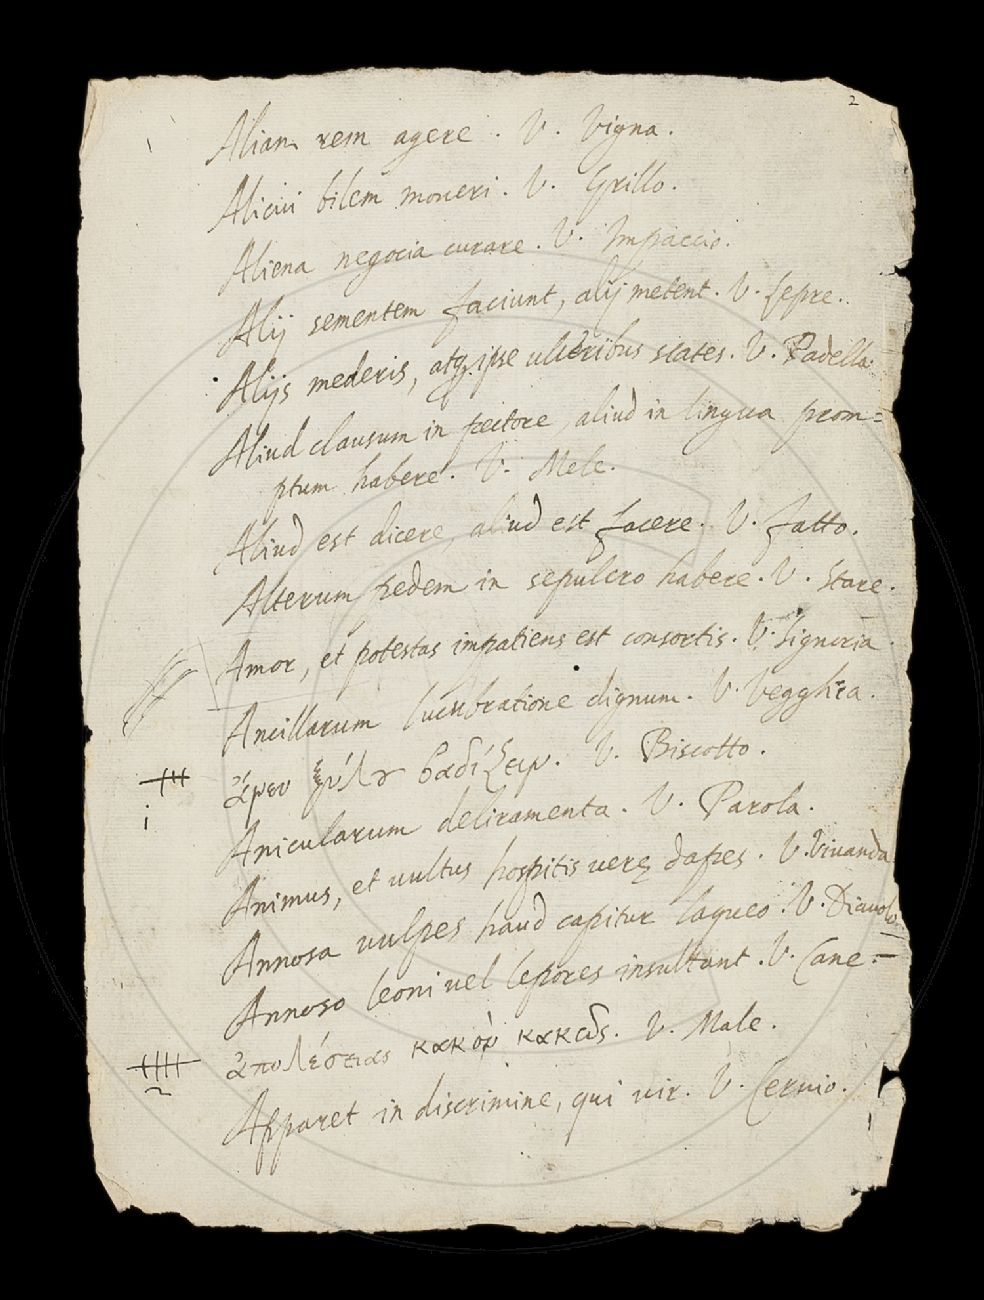 2
Aliam rem agere. V. Vigna.
Alicui bilem moueri. V. Grillo.
Aliena negocia curare. V. Impaccio.
Alij sementem faciunt, alij metent. V. Lepre.
Alijs mederis, atq; ipse ulceribus scates. V. Padella
Aliud clausum in pectore, aliud in lingua prom=
ptum habere. V. Mele.
Aliud est dicere, aliud est facere. V. fatto.
Alterum pedem in sepulcro habere. V. Stare.
Amor, et potestas impatiens est consortis. V. Signoria.
Ancillarum lucubratione dignum. V. Vegghia.
ἄνευ ξύλου βαδίζειν. V. Biscotto.
Anicularum deliramenta. V. Parola.
Animus, et uultus hospitis uerę dapes. V. Viuanda
Annosa uulpes haud capitur laqueo. V. Diauolo
Annoso leoni uel lepores insultant. V. Cane.
ἀπολέσειας κακὸν κακῶς. V. Male.
Apparet in discrimine, qui uir. V. Ceruio.